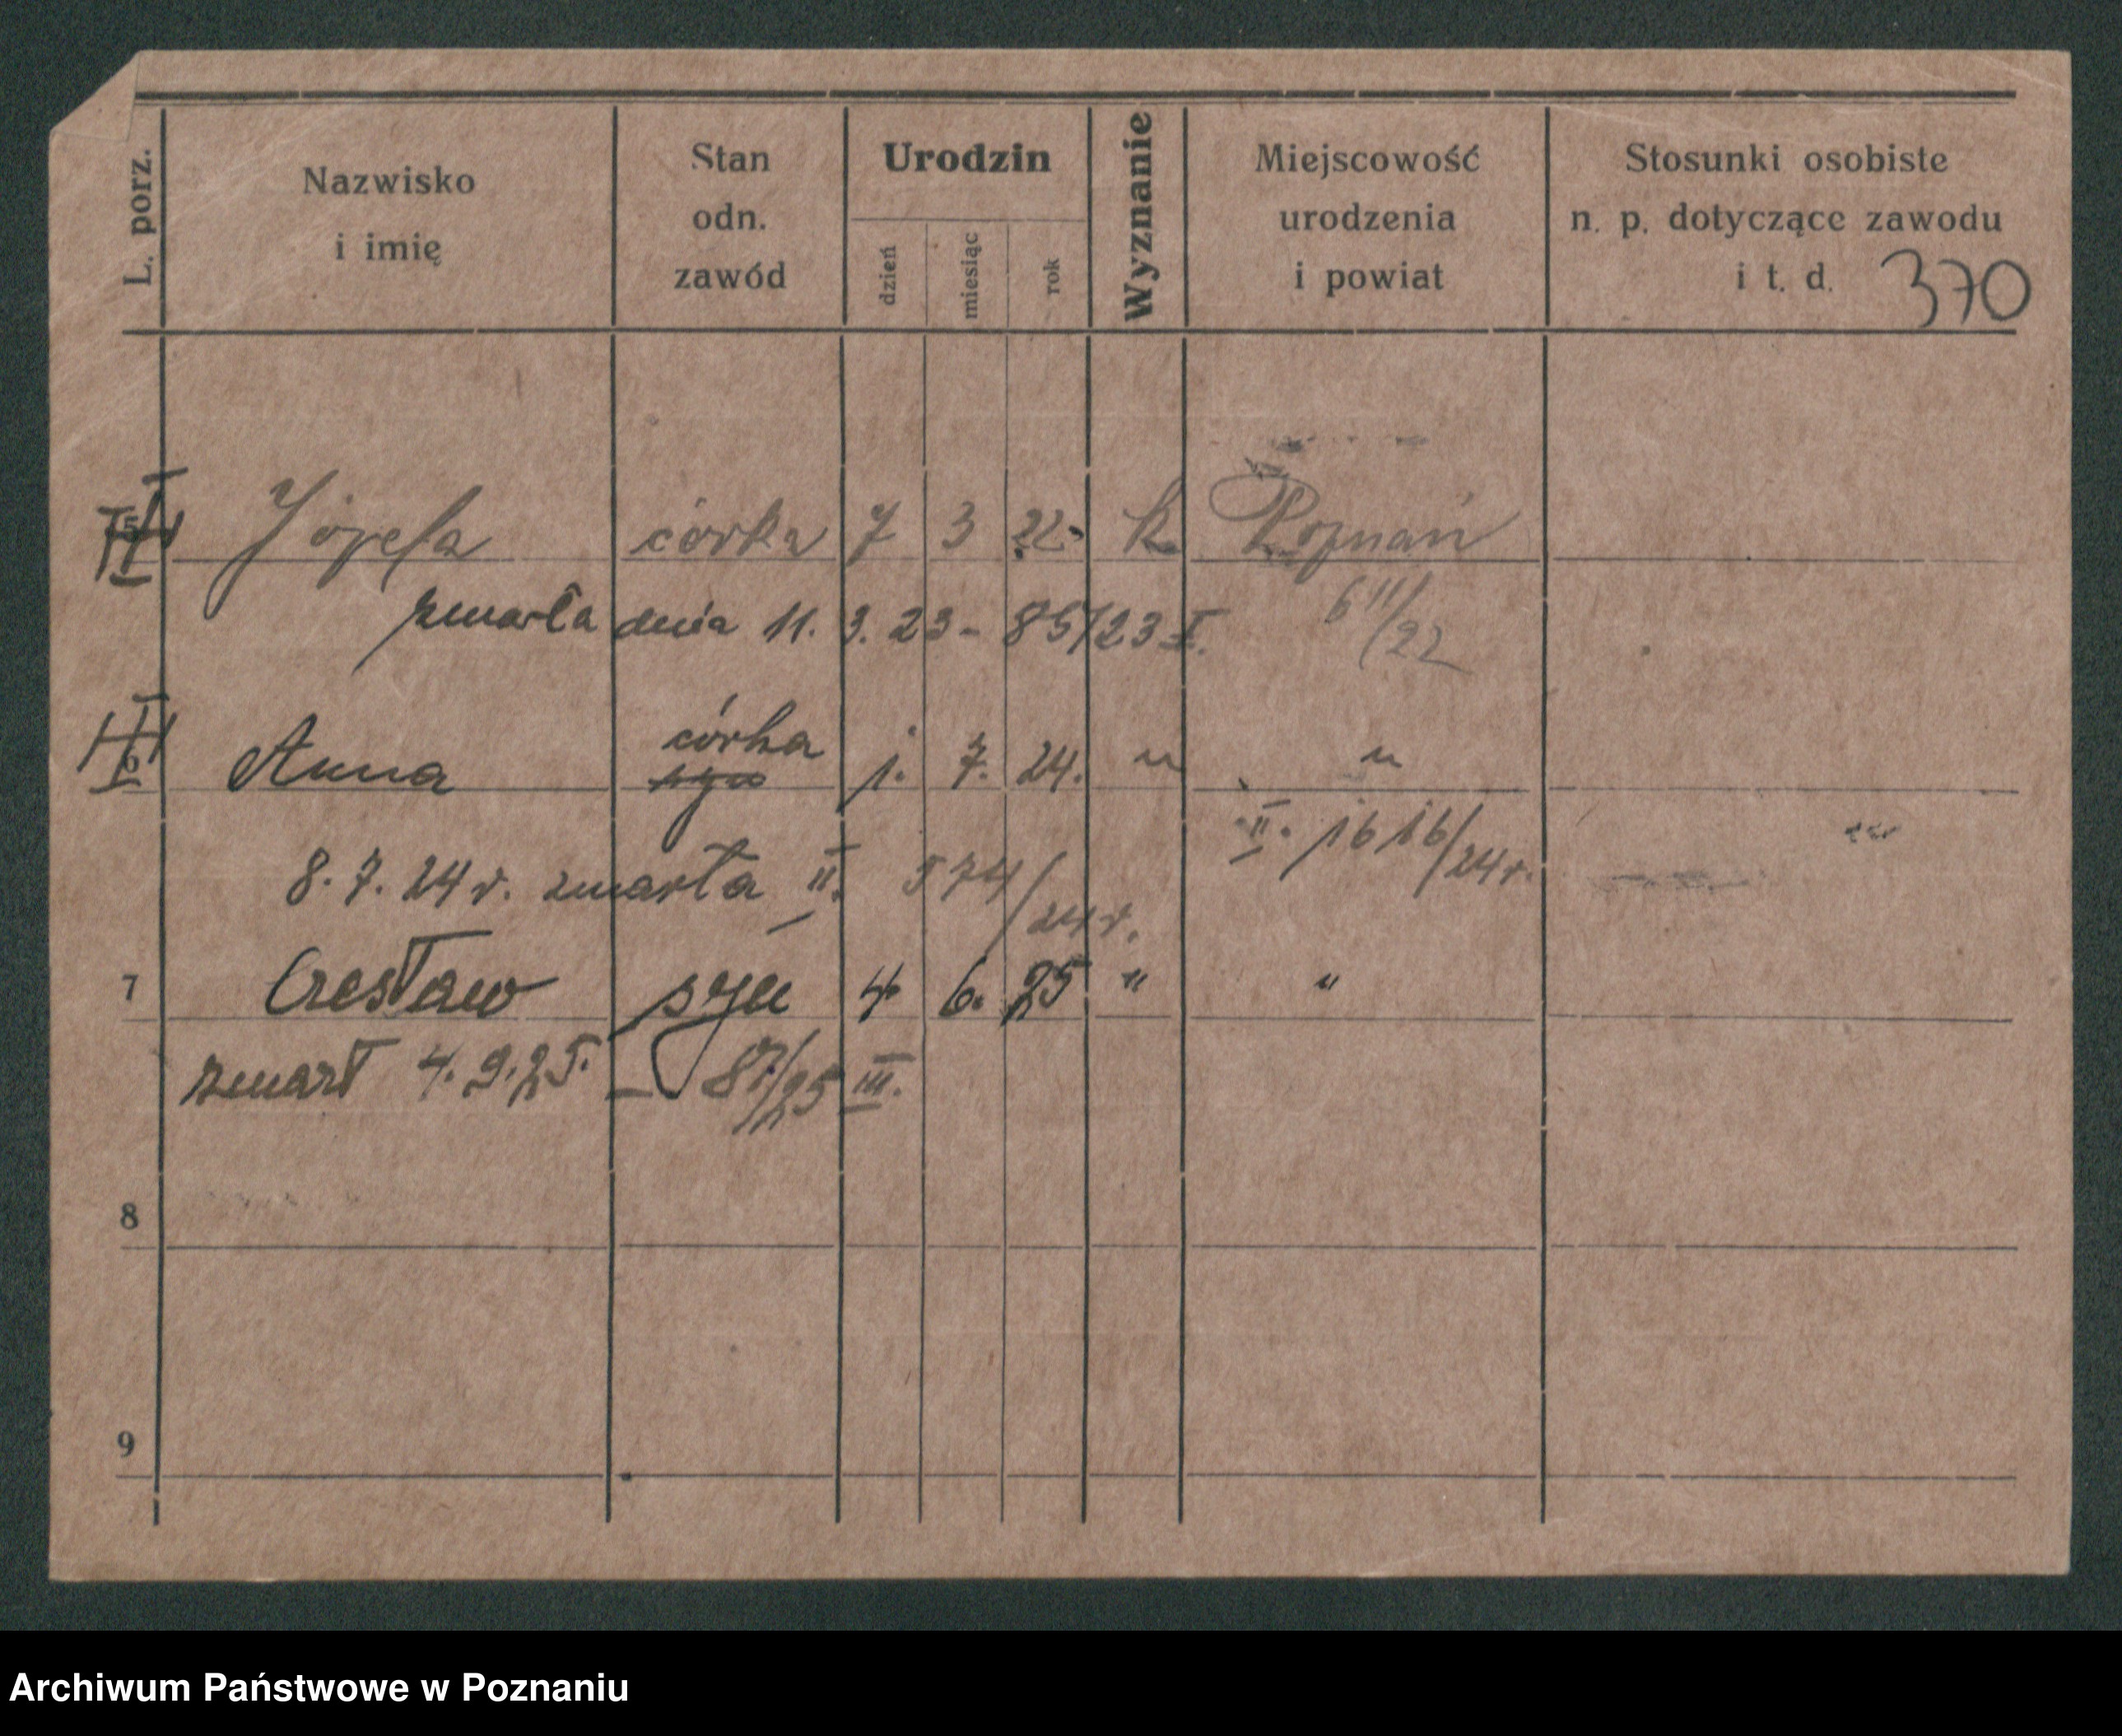 L. porz.
Nazwisko
i imię
Stan
odn.
zawód
Urodzin
dzień
miesiąc
rok
Wyznanie
Miejscowość
urodzenia
i powiat
Stosunki osobiste
n. p. dotyczące zawodu
i t. d.
370
5 Józefa córka 7 3 22 k. Poznań
zmarła dnia 11. 3. 23 - 85/23 I.
611/22
córka
6 Anna syn 1. 7. 24. " "
II. 1616/24 r.
8. 7. 24 r. zmarła II. 574/24 r.
7 Czesław syn 4 6. 25 " "
zmarł 4. 9. 25. - 87/25 III.
8
9
Archiwum Państwowe w Poznaniu